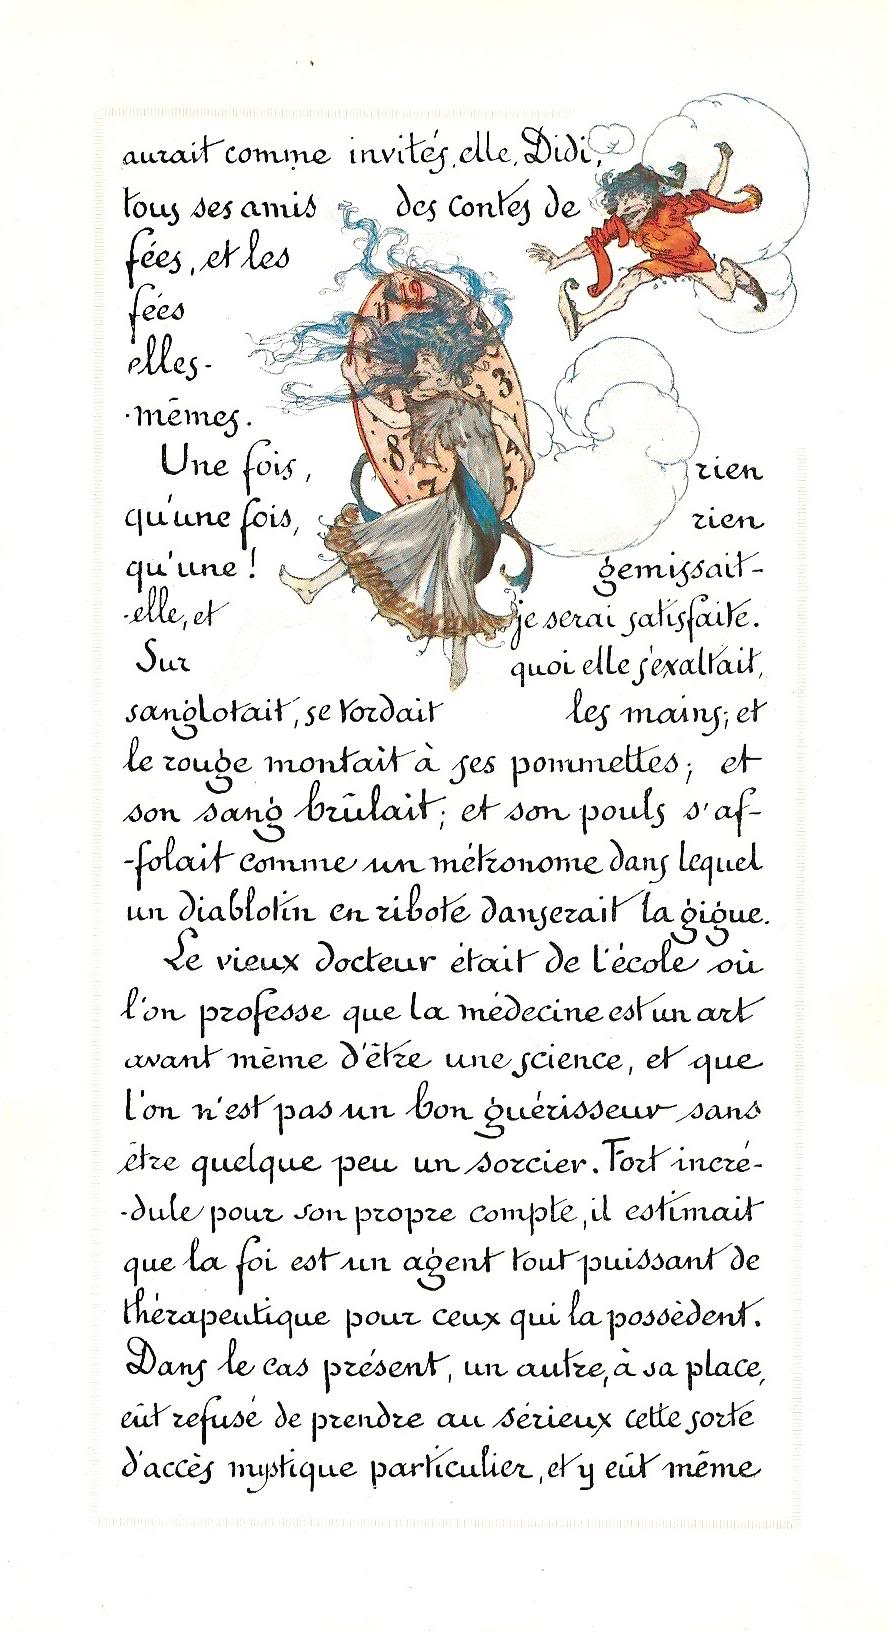 aurait comme invités, elle, Didi,
tous ses amis des contes de
fées, et les
fées
elles-
-mêmes.
Une fois, rien
qu'une fois, rien
qu'une ! gemissait-
-elle, et je serai satisfaite.
Sur quoi elle s'exaltait,
sanglotait, se tordait les mains; et
le rouge montait à ses pommettes; et
son sang brûlait; et son pouls s'af-
-folait comme un métronome dans lequel
un diablotin en ribote danserait la gigue.
Le vieux docteur était de l'école où
l'on professe que la médecine est un art
avant même d'être une science, et que
l'on n'est pas un bon guérisseur sans
être quelque peu un sorcier. Fort incré-
-dule pour son propre compte, il estimait
que la foi est un agent tout puissant de
thérapeutique pour ceux qui la possèdent.
Dans le cas présent, un autre, à sa place,
eût refusé de prendre au sérieux cette sorte
d'accès mystique particulier, et y eût même
11 12
3
8 4
7 5